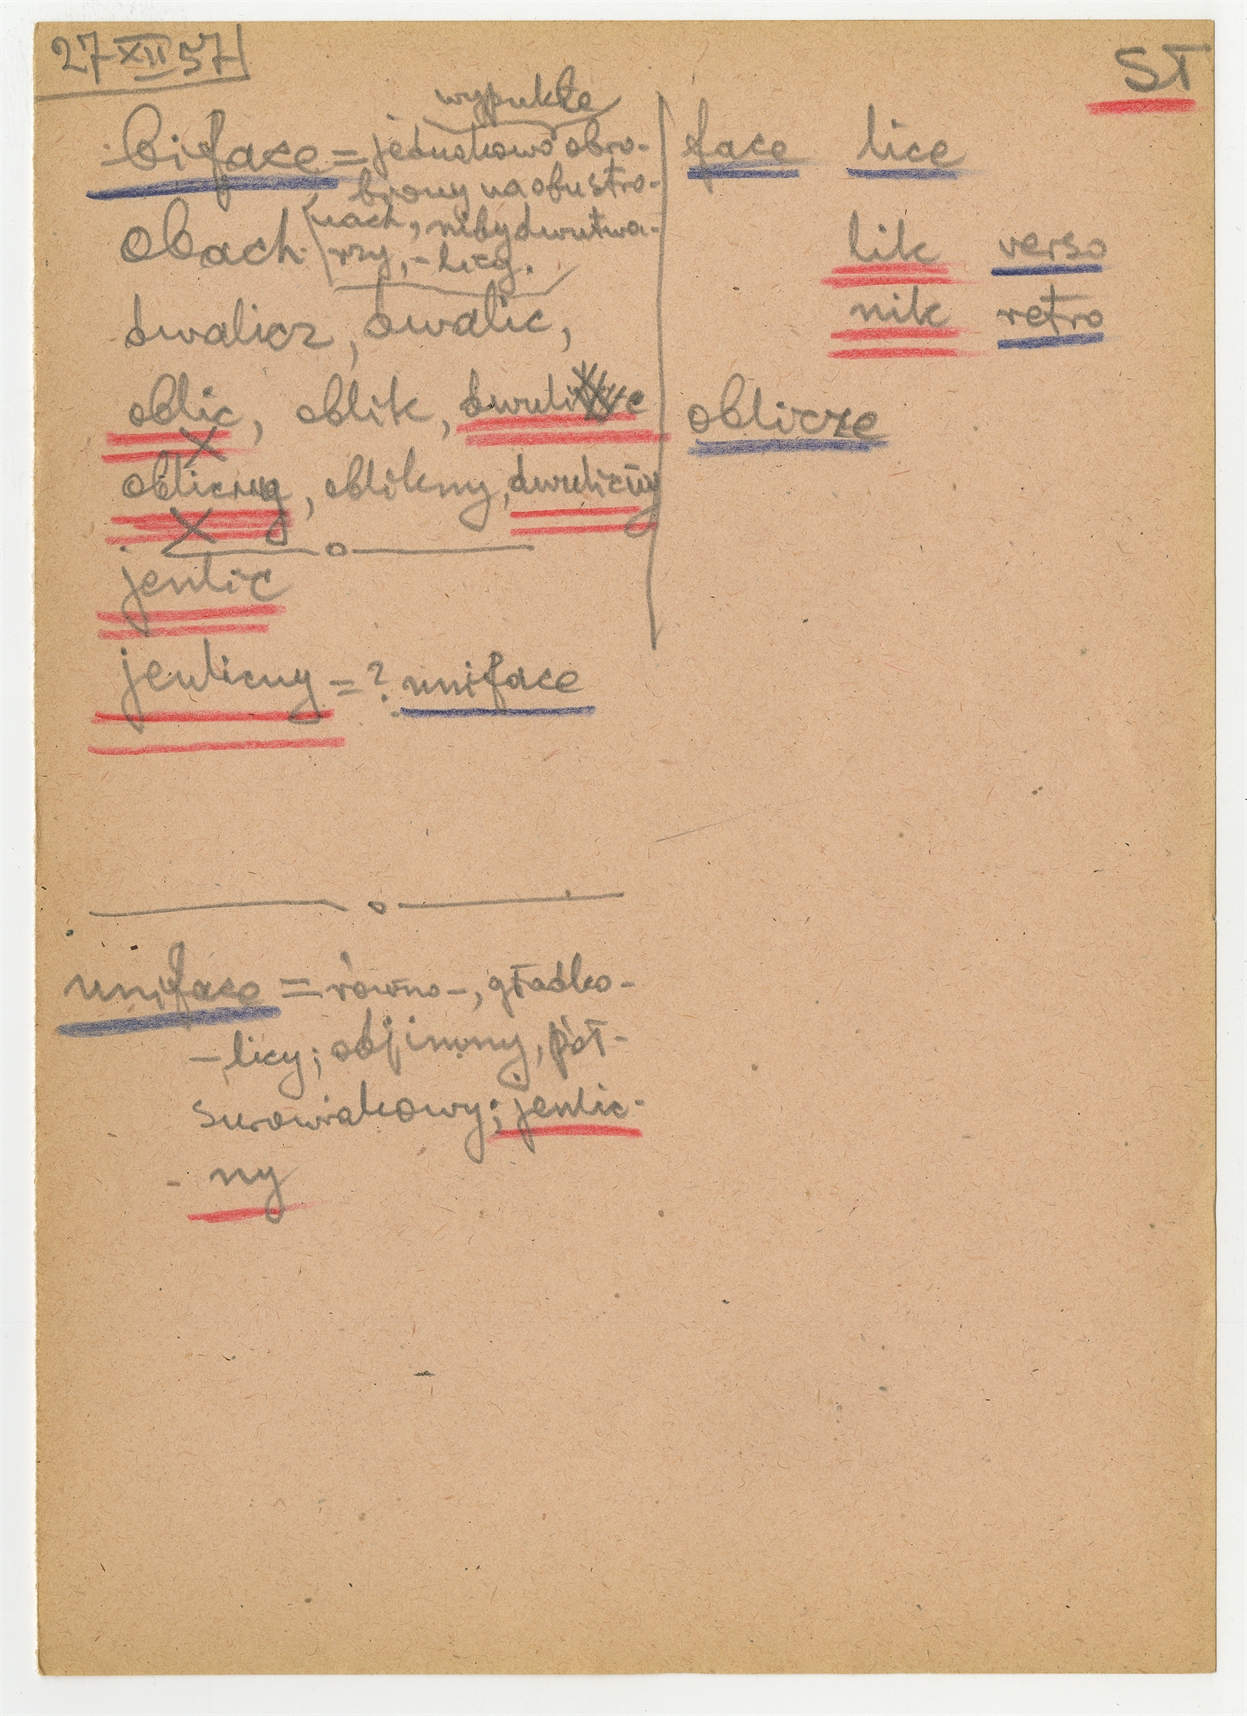 27 XII 57
ST
wypukłe
biface = jednakowo obro-
biony na obu stro-
nach, niby dwutwa-
rzy, -licy.
obach
dwalicz, dwalic,
oblic, oblik,
obliczny, oblikny, dwuliczny
jenlic
jenlicny = ? uniface
face lice
lik verso
nik retro
oblicze
uniface = równo-, gładko-
-licy; objinny, pół-
surowiakowy; jenlic-
- ny